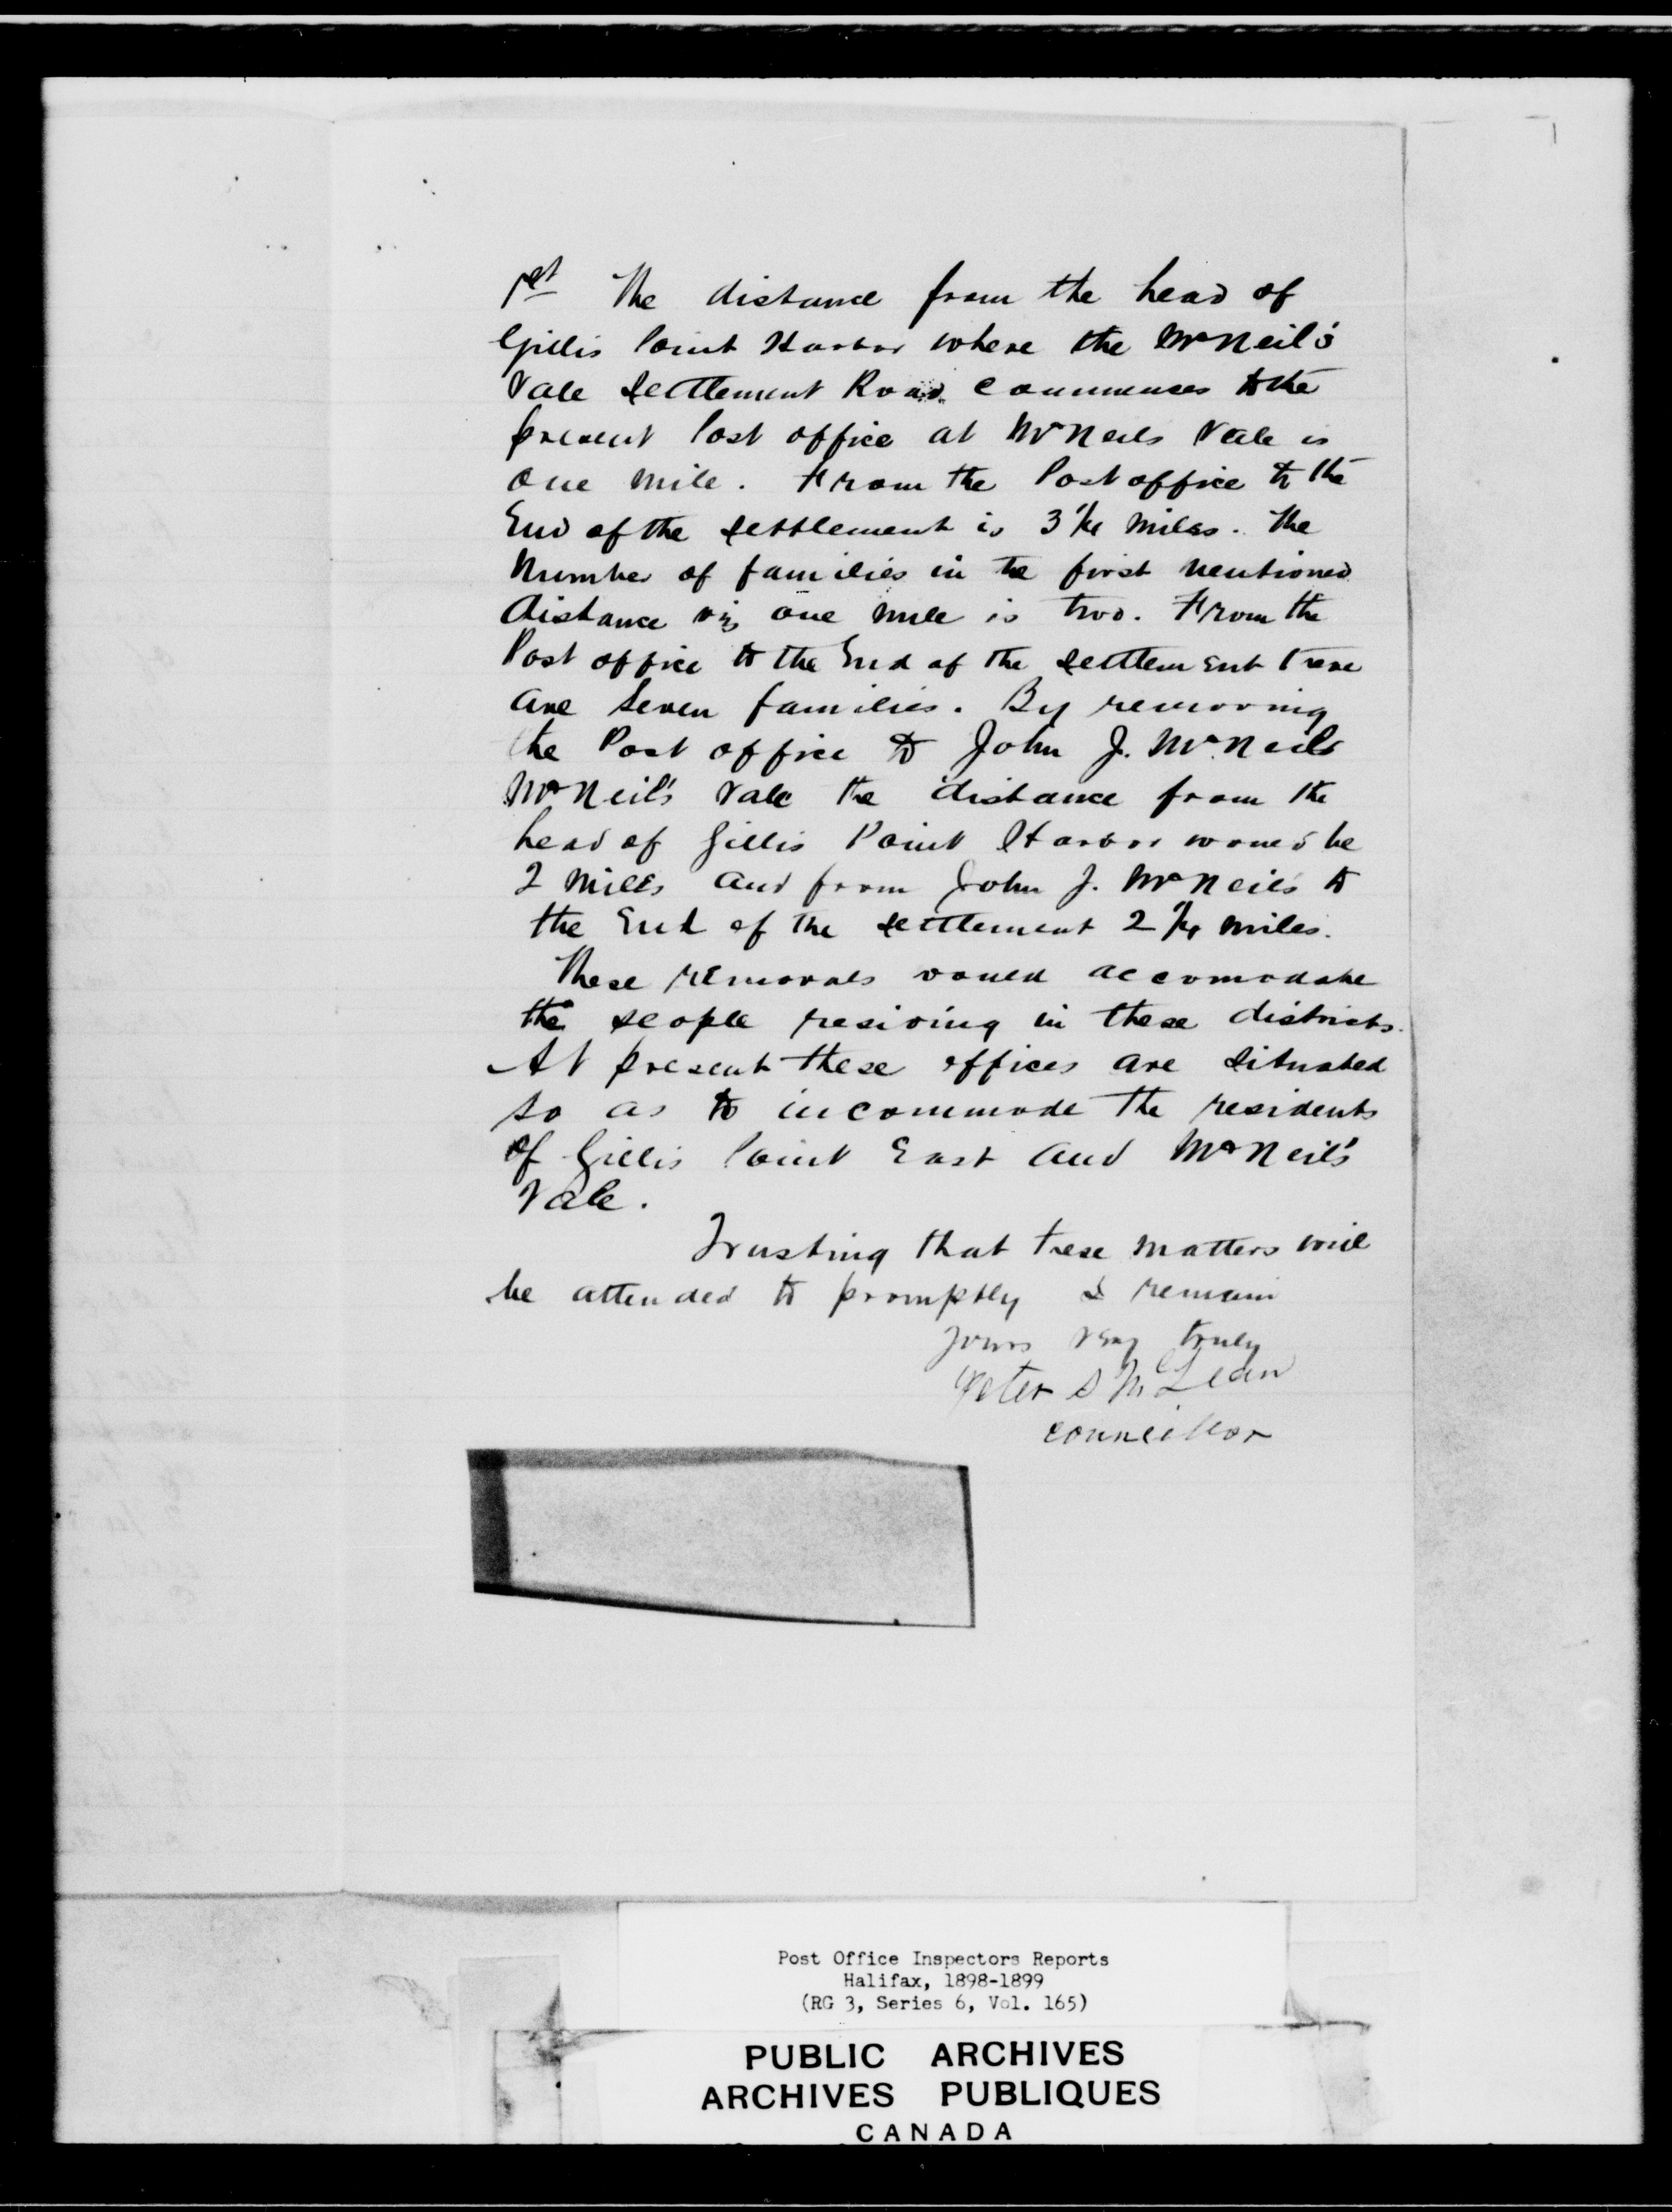 1st The distance from the head of
Gillis Point Harbor where the McNeil's
Vale Settlement Road commences to the
present Post office at McNeils Vale is
one mile. From the Post office to the
End of the settlement is 3 1/4 miles. The
Number of families in the first mentioned
distance viz one mile is two. From the
Post office to the End of the settlement there
are seven families. By removing
the Post office to John J. McNeils
McNeil's Vale the distance from the
head of Gillis Point Harbor would be
2 miles and from John J. McNeils to
the End of the settlement 2 1/4 miles.
These removals would accomodate
the people residing in these districts.
At present these offices are situated
so as to incommode the residents
of Gillis Point East and McNeil's
Vale.
Trusting that these matters will
be attended to promptly I remain
Yours very truly
Peter S McLean
Councillor
Post Office Inspectors Reports
Halifax, 1898-1899
(RG 3, Series 6, Vol. 165)
PUBLIC ARCHIVES
ARCHIVES PUBLIQUES
CANADA